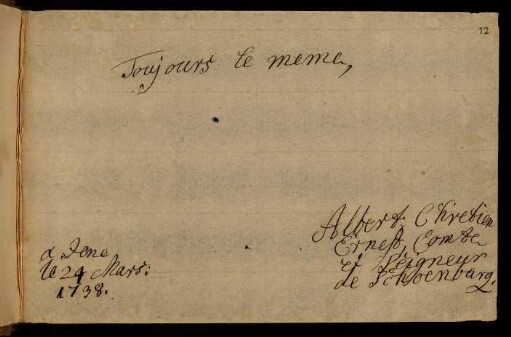 12
Toujours le meme,
a Jene
le 24 Mars:
1738.
Albert Chretien
Ernest, Comte
et Seigneur
de Schoenburg.